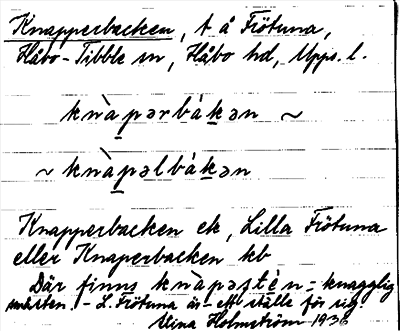 Knapperbacken, t å Frötuna,
Håbo-Tibble sn, Håbo hd, Upps. l.
knàpərbákən ~
~ knàpəlbákən
Knapperbacken ek, Lilla Frötuna
eller Knaperbacken kb
Där finns knàpəstèn = knagglig
- L. Frötuna är ett ställe för sig.
Alina Holmström 1936